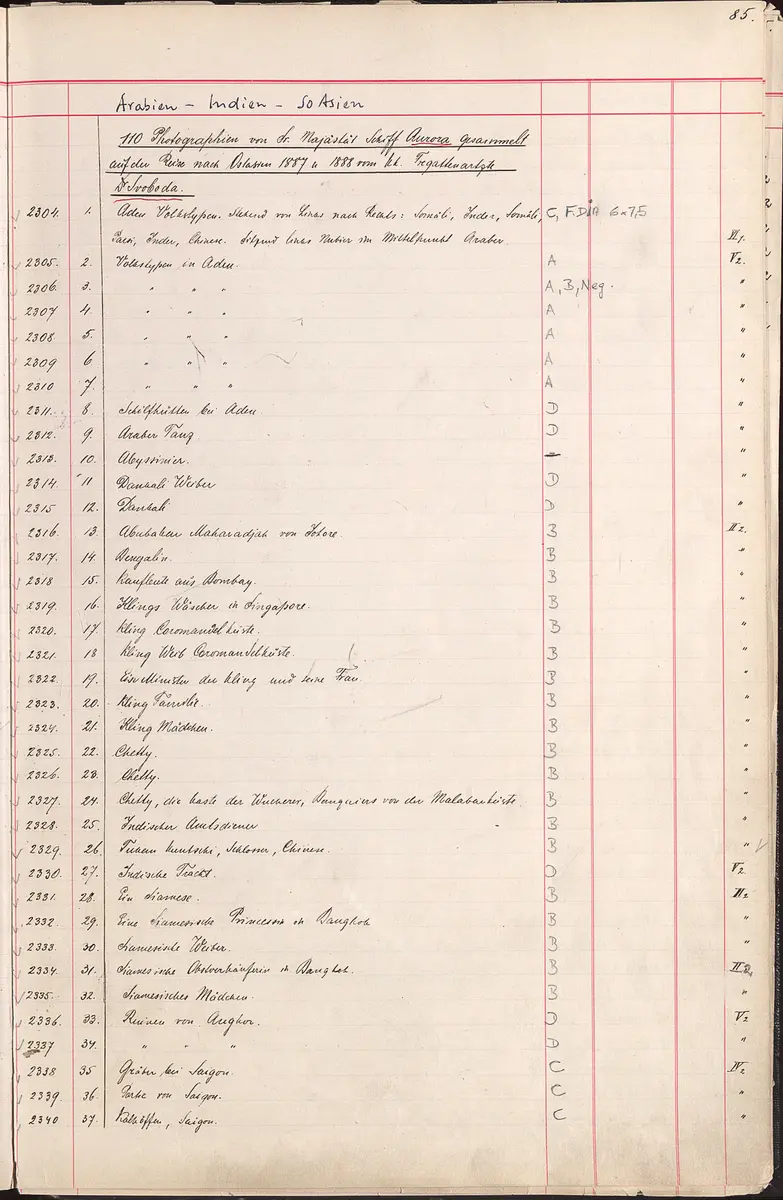 85.
Arabien - Indien - SO Asien
110 Photographien von Sr. Majästät Schiff Aurora gesammelt
auf der Reise nach Ostasien 1887 u 1888 vom kk. Fregattenarzte
Dr Svoboda.
2304. 1. Aden Volkstypen. Stehend von Links nach Rechts: Somäli, Inder, Somäli, C, F.DIA 6x7,5
Parsi, Inder, Chinese. Sitzend links Nubier im Mittelpunkt Araber. VI1.
2305. 2. Volkstypen in Aden. A V2.
2306 3. " " " A, B, Neg. "
2307 4. " " " A "
2308 5. " " " A "
2309 6 " " " A "
2310 7. " " " A "
2311. 8. Schilfhütten bei Aden D "
2312. 9. Araber Tanz D "
2313. 10. Abyssinier. - "
2314. 11 Dankali Weiber D "
2315 12. Dankali D "
2316. 13. Abubaker Maharadjah von Johore. B III2.
2317. 14. Bengalin. B "
2318 15. Kaufleute aus Bombay. B "
2319. 16. Klings Wäscher in Singapore. B "
2320. 17. Kling Coromandelküste. B "
2321. 18 Kling Weib Coromandelküste. B "
2322. 19. Eis Minister der Kling und seine Frau. B "
2323. 20. Kling Familie. B "
2324. 21. Kling Mädchen. B "
2325. 22. Chetty. B "
2326. 23. Chetty. B "
2327. 24. Chetty, die Kaste der Wucherer, Banquiers von der Malabarküste. B "
2328. 25. Indischer Amtsdiener B "
2329. 26. Schlosser, Chinese. B "
2330. 27. Indische Tracht. D V2.
2331. 28. Ein Siamese. B III2
2332. 29. Eine Siamesische Princessin in Bangkok B "
2333. 30. Siamesische Weiber. B "
2334. 31. Siamesische Obstverkäuferin in Bangkok. B
2335. 32. Siamesisches Mädchen. B "
2336. 33. Ruinen von Angkor. D V2
2337 34. " " " D "
2338 35 Gräber bei Saigon. C IV2
2339. 36. von Saigon. C "
2340 37. Kalköffen, Saigon. C "